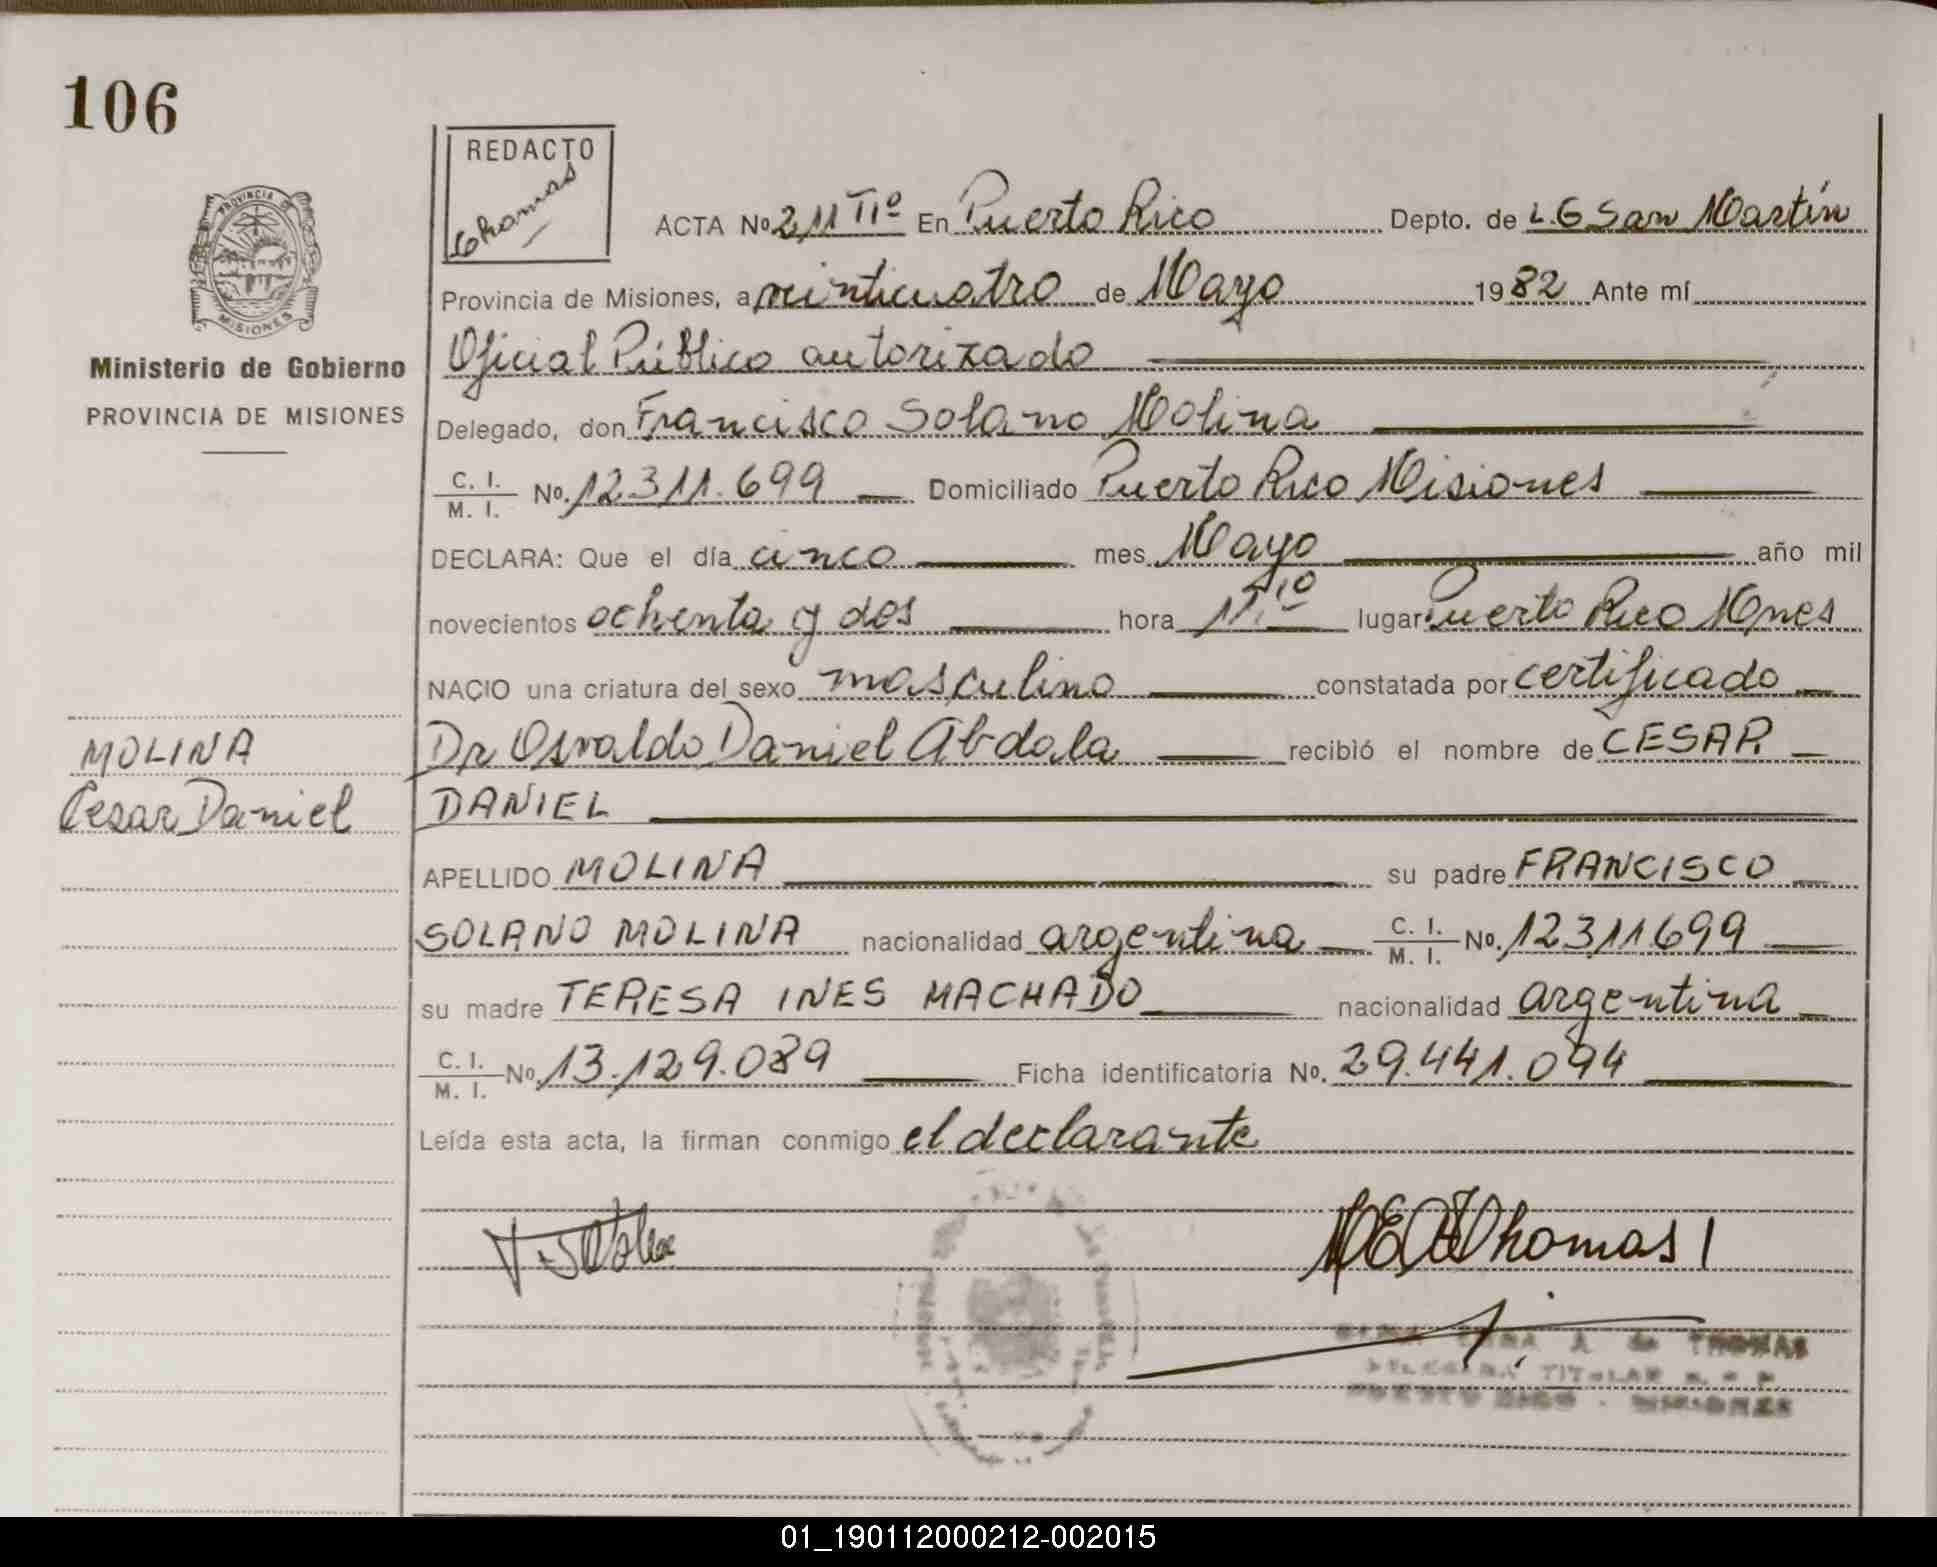 106
REDACTO
Thomas
PROVINCIA DE
MISIONES
Ministerio de Gobierno
PROVINCIA DE MISIONES
ACTA Nº 211 TIº En Puerto Rico Depto. de L.G San Martín
Provincia de Misiones, a veinticuatro de Mayo 1982 Ante mí
Oficial Público autorizado
Delegado, don Francisco Solano Molina
C. I. / M. I. Nº. 12311.699 Domiciliado Puerto Rico Misiones
DECLARA: Que el día cinco mes Mayo año mil
novecientos ochenta y dos hora 11,10 lugar Puerto Rico Mnes
NACIO una criatura del sexo masculino constatada por certificado
Dr Osvaldo Daniel Abdala recibió el nombre de CESAR
DANIEL
MOLINA
Cesar Daniel
APELLIDO MOLINA su padre FRANCISCO
SOLANO MOLINA nacionalidad argentina C. I. / M. I. Nº. 12311699
su madre TERESA INES MACHADO nacionalidad argentina
C. I. / M. I. Nº. 13.129.089 Ficha identificatoria Nº. 29.441.094
Leída esta acta, la firman conmigo el declarante
Thomas
A de THOMAS
TITULAR
PUERTO RICO - MISIONES
01_190112000212-002015